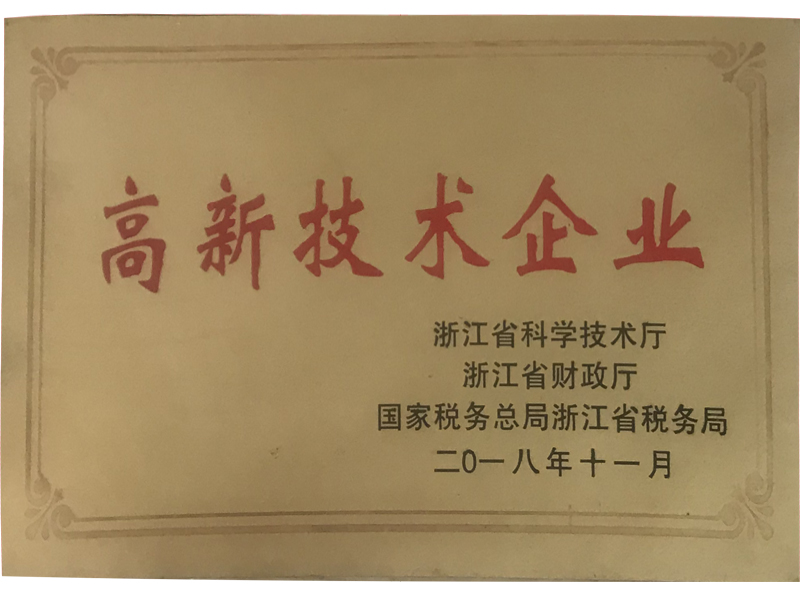 高新技术企业
浙江省科学技术厅
浙江省财政厅
国家税务总局浙江省税务局
二0一八年十一月